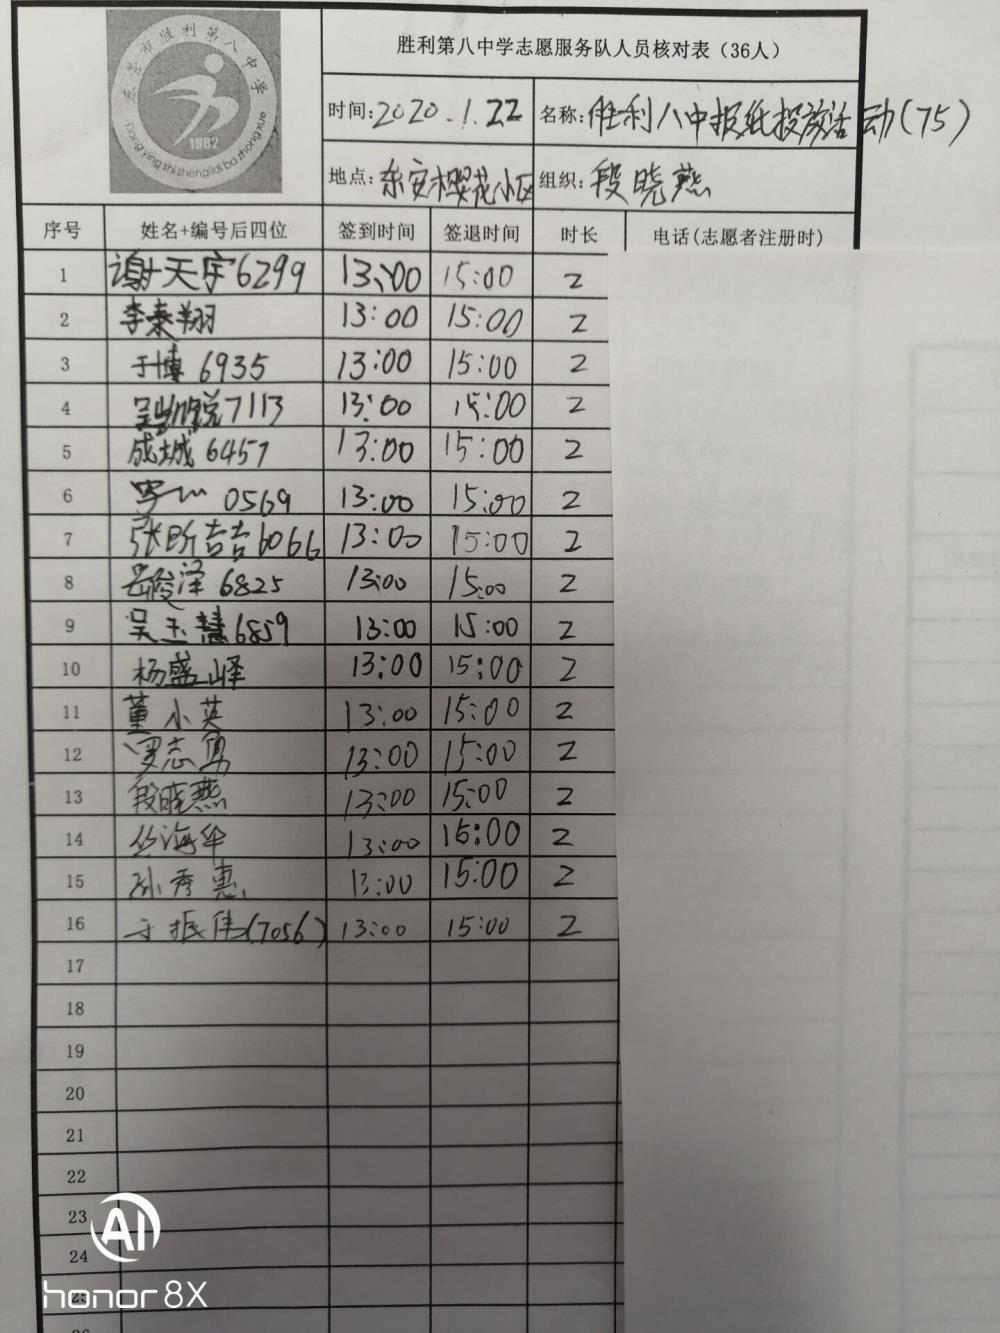 东营市胜利第八中学
1982
Dong ying shi shenglidi ba zhong xue
胜利第八中学志愿服务队人员核对表（36人）
时间:2020.1.22 名称:胜利八中报纸投放活动(75)
地点:东安樱花小区 组织:段晓燕
序号 姓名+编号后四位 签到时间 签退时间 时长 电话(志愿者注册时)
1 谢天宇6299 13:00 15:00 2
2 李泰翔 13:00 15:00 2
3 于博 6935 13:00 15:00 2
4 7113 13:00 15:00 2
5 成城 6457 13:00 15:00 2
6 0569 13:00 15:00 2
7 张昕喆6066 13:00 15:00 2
8 岳俊泽 6825 13:00 15:00 2
9 吴玉慧6859 13:00 15:00 2
10 杨盛峄 13:00 15:00 2
11 董小英 13:00 15:00 2
12 罗志勇 13:00 15:00 2
13 段晓燕 13:00 15:00 2
14 丛海华 13:00 15:00 2
15 孙秀惠 13:00 15:00 2
16 于振伟(7056) 13:00 15:00 2
17
18
19
20
21
22
23
24
AI
honor 8X